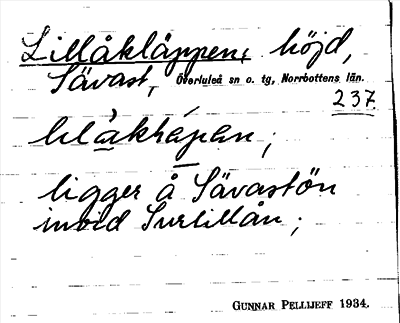 Lillåkläppen, höjd,
Sävast, Överluleå sn o. tg, Norrbottens län.
237
ligger å Sävastön
invid Surlillån;
GUNNAR PELLIJEFF 1934.